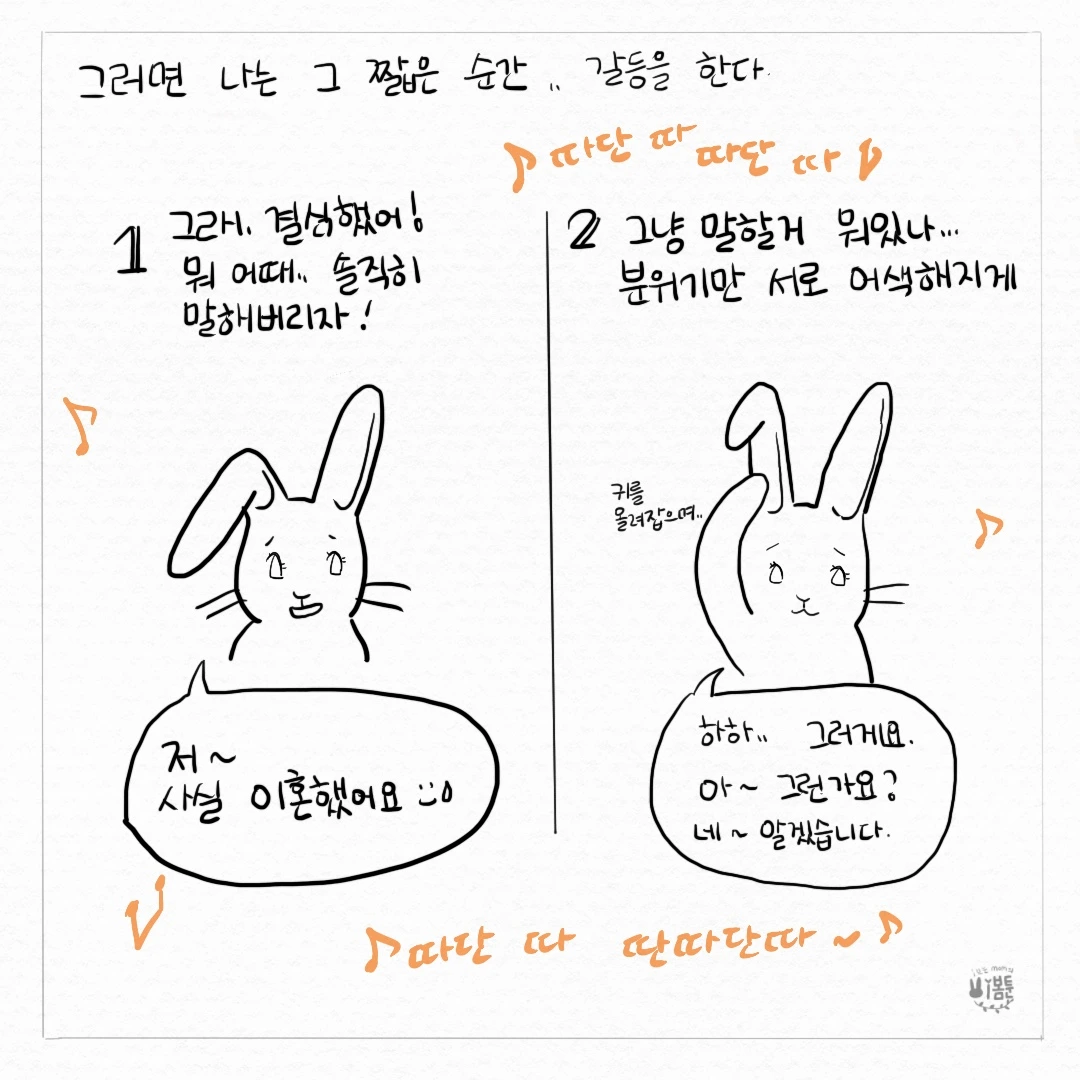 그러면 나는 그 짧은 순간.. 갈등을 한다.
♪ 따단 따 따단 따 ♪
1 그래. 결심했어!
뭐 어때.. 솔직히
말해버리자!
2 그냥 말할거 뭐있나...
분위기만 서로 어색해지게
귀를
올려잡으며..
저~
사실 이혼했어요
하하.. 그러게요.
아~ 그런가요?
네~ 알겠습니다.
♪ 따단 따 딴따단따 ~ ♪
봄툰